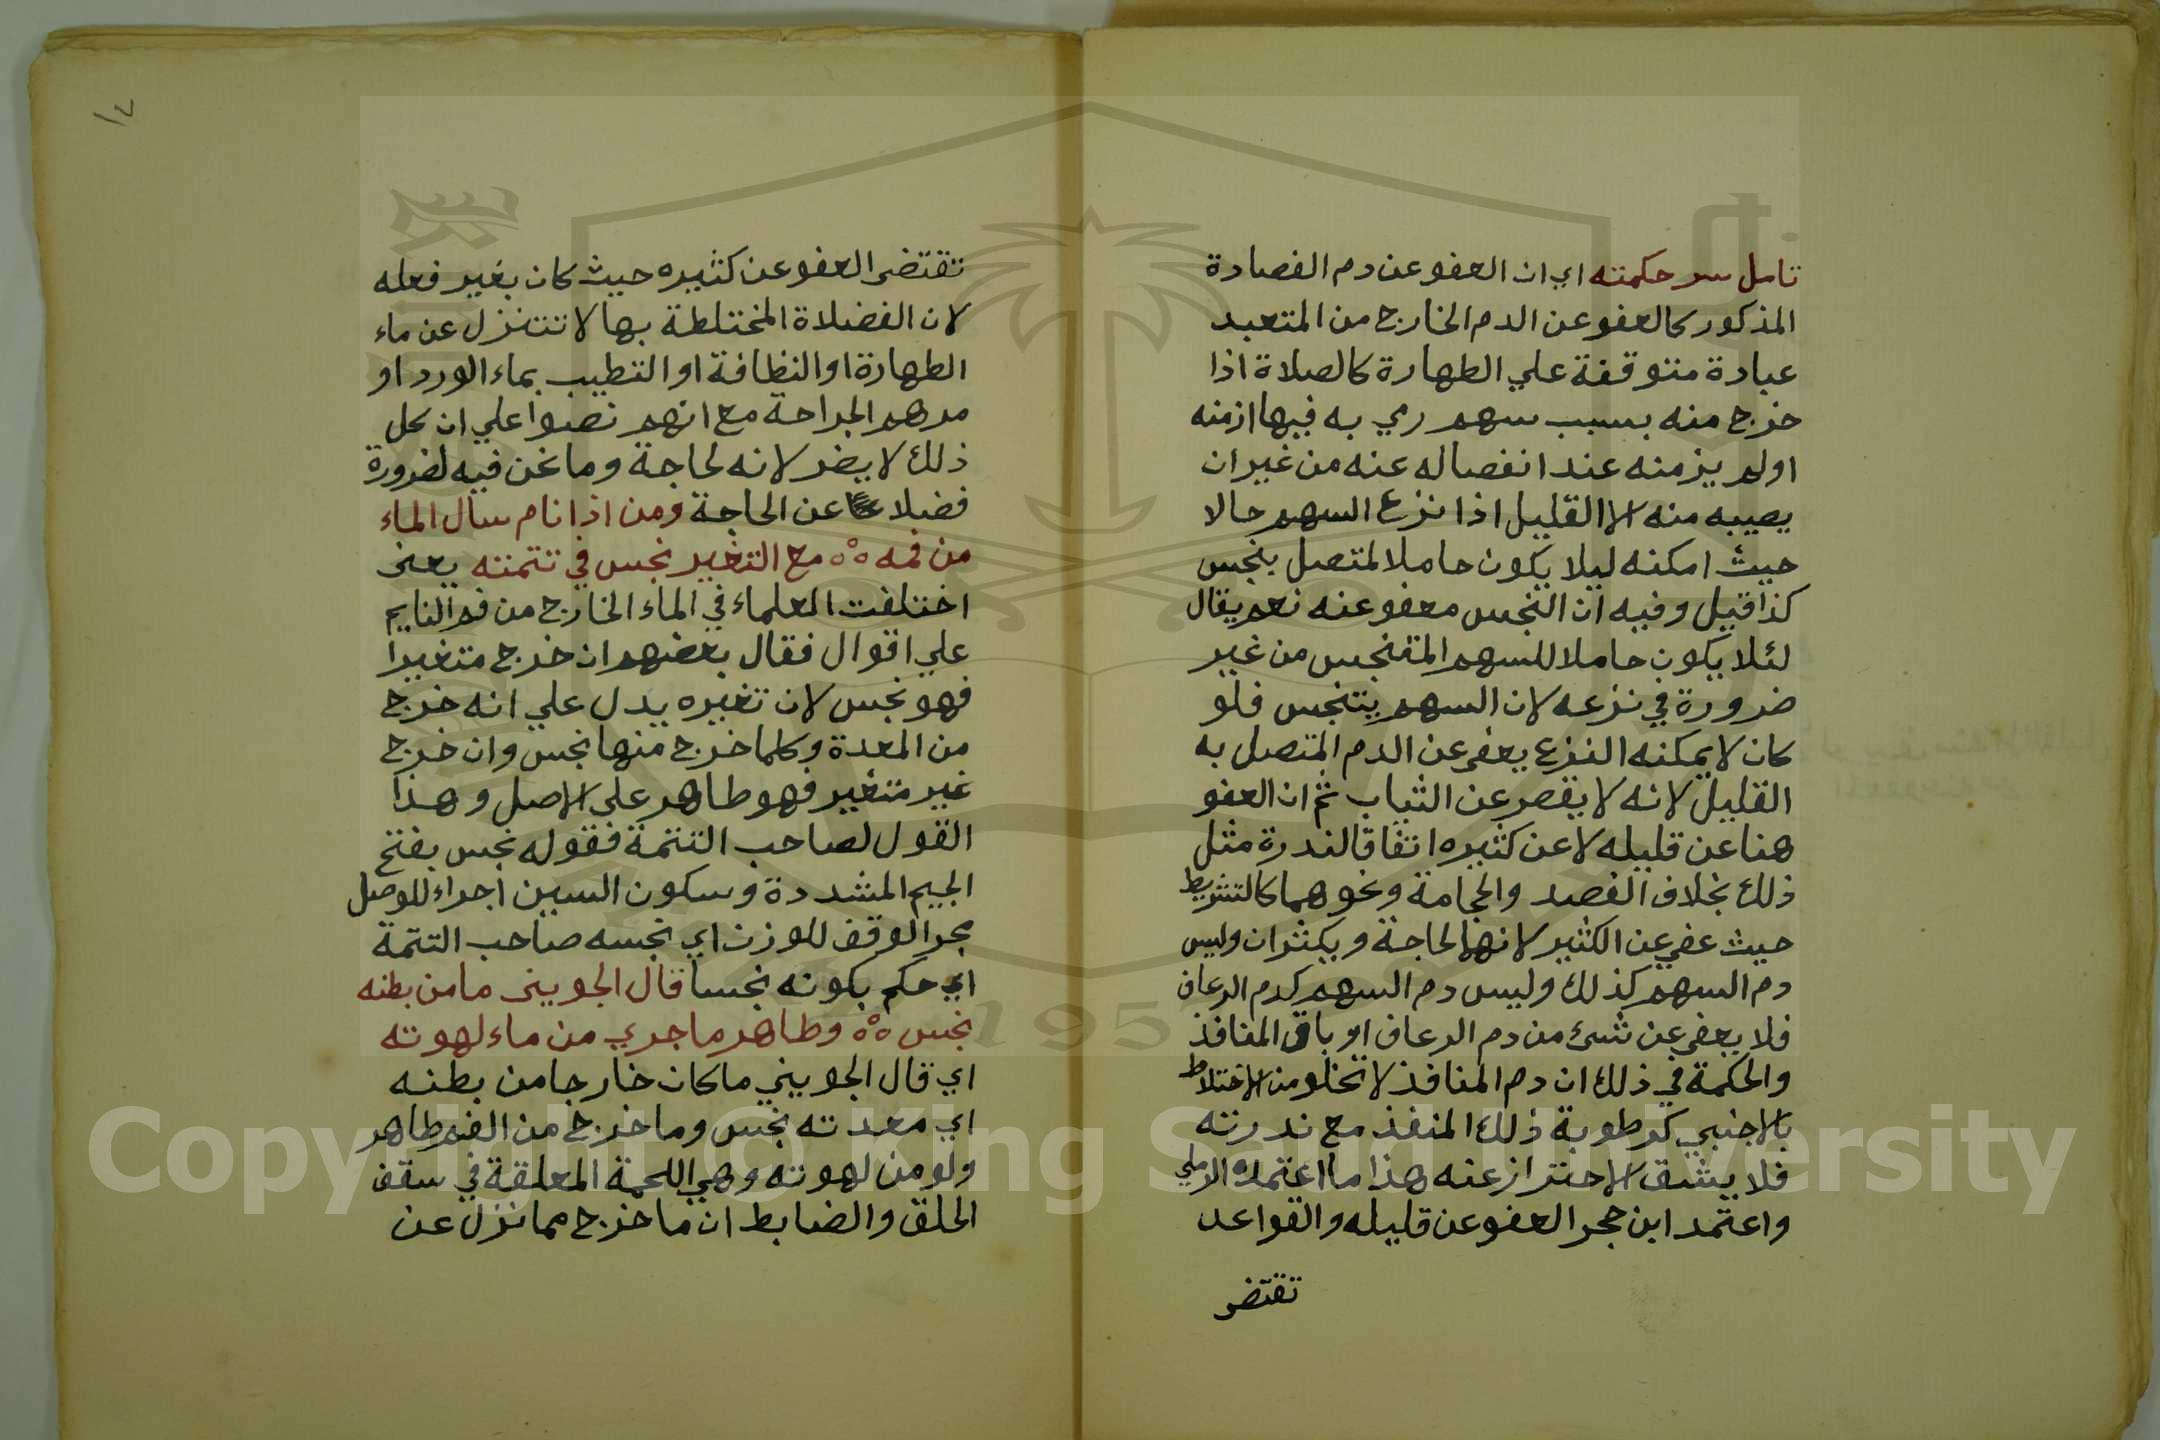 تامل سر حكمته اي ان العفو عن دم الفصادة
المذكور كالعفو عن الدم الخارج من المتعبد
عبادة متوقفة علي الطهارة كالصلاة اذا
خرج منه بسبب سهم رمي به فيها ازمنه
او لم يزمنه عند انفصاله عنه من غير ان
يصيبه منه الا القليل اذا نزع السهم حالا
حيث امكنه ليلا يكون حاملا لمتصل بنجس
كذا قيل وفيه ان النجس معفو عنه نعم يقال
لئلا يكون حاملا للسهم المتنجس من غير
ضرورة في نزعه لان السهم يتنجس فلو
كان لا يمكنه النزع يعفي عن الدم المتصل به
القليل لانه لا يقصر عن الثياب ثم ان العفو
هنا عن قليله لا عن كثيره اتفاقا لندرة مثل
ذلك بخلاف الفصد والحجامة ونحوهما كالتشريط
حيث عفي عن الكثير لانها لحاجة ويكثران وليس
دم السهم كذلك وليس دم السهم كدم الرعاف
فلا يعفي عن شئ من دم الرعاف او باقي المنافذ
والحكمة في ذلك ان دم المنافذ لا تخلو من الاختلاط
بالاجنبي كرطوبة ذلك المنفذ مع ندرته
فلا يشق الاحتراز عنه هذا ما اعتمده الرملي
واعتمد ابن حجر العفو عن قليله والقواعد
تقتضي
١٧
تقتضي العفو عن كثيره حيث كان بغير فعله
لان الفضلاة المختلطة بها لا تتنزل عن ماء
الطهارة او النظافة او التطيب بماء الورد او
مرهم الجراحة مع انهم نصوا علي ان كل
ذلك لا يضر لانه لحاجة وما نحن فيه لضرورة
فضلا عن الحاجة ومن اذا نام سال الماء
من فمه ه°ه مع التغير نجس في تتمته يعني
اختلفت العلماء في الماء الخارج من فم النايم
علي اقوال فقال بعضهم ان خرج متغيرا
فهو نجس لان تغيره يدل علي انه خرج
من المعدة وكلما خرج منها نجس وان خرج
غير متغير فهو طاهر علي الاصل وهذا
القول لصاحب التتمة فقوله نجس بفتح
الجيم المشددة وسكون السين اجراء للوصل
مجر الوقف للوزن اي نجسه صاحب التتمة
اي حكم بكونه نجسا قال الجويني ما من بطنه
نجس ه°ه وطاهر ما جري من ماء لهوته
اي قال الجويني ما كان خارجا من بطنه
اي معدته نجس وما خرج من الفم طاهر
ولو من لهوته وهي اللحمة المعلقة في سقف
الحلق والضابط ان ما خرج مما نزل عن
Copyright © King Saud University
1957